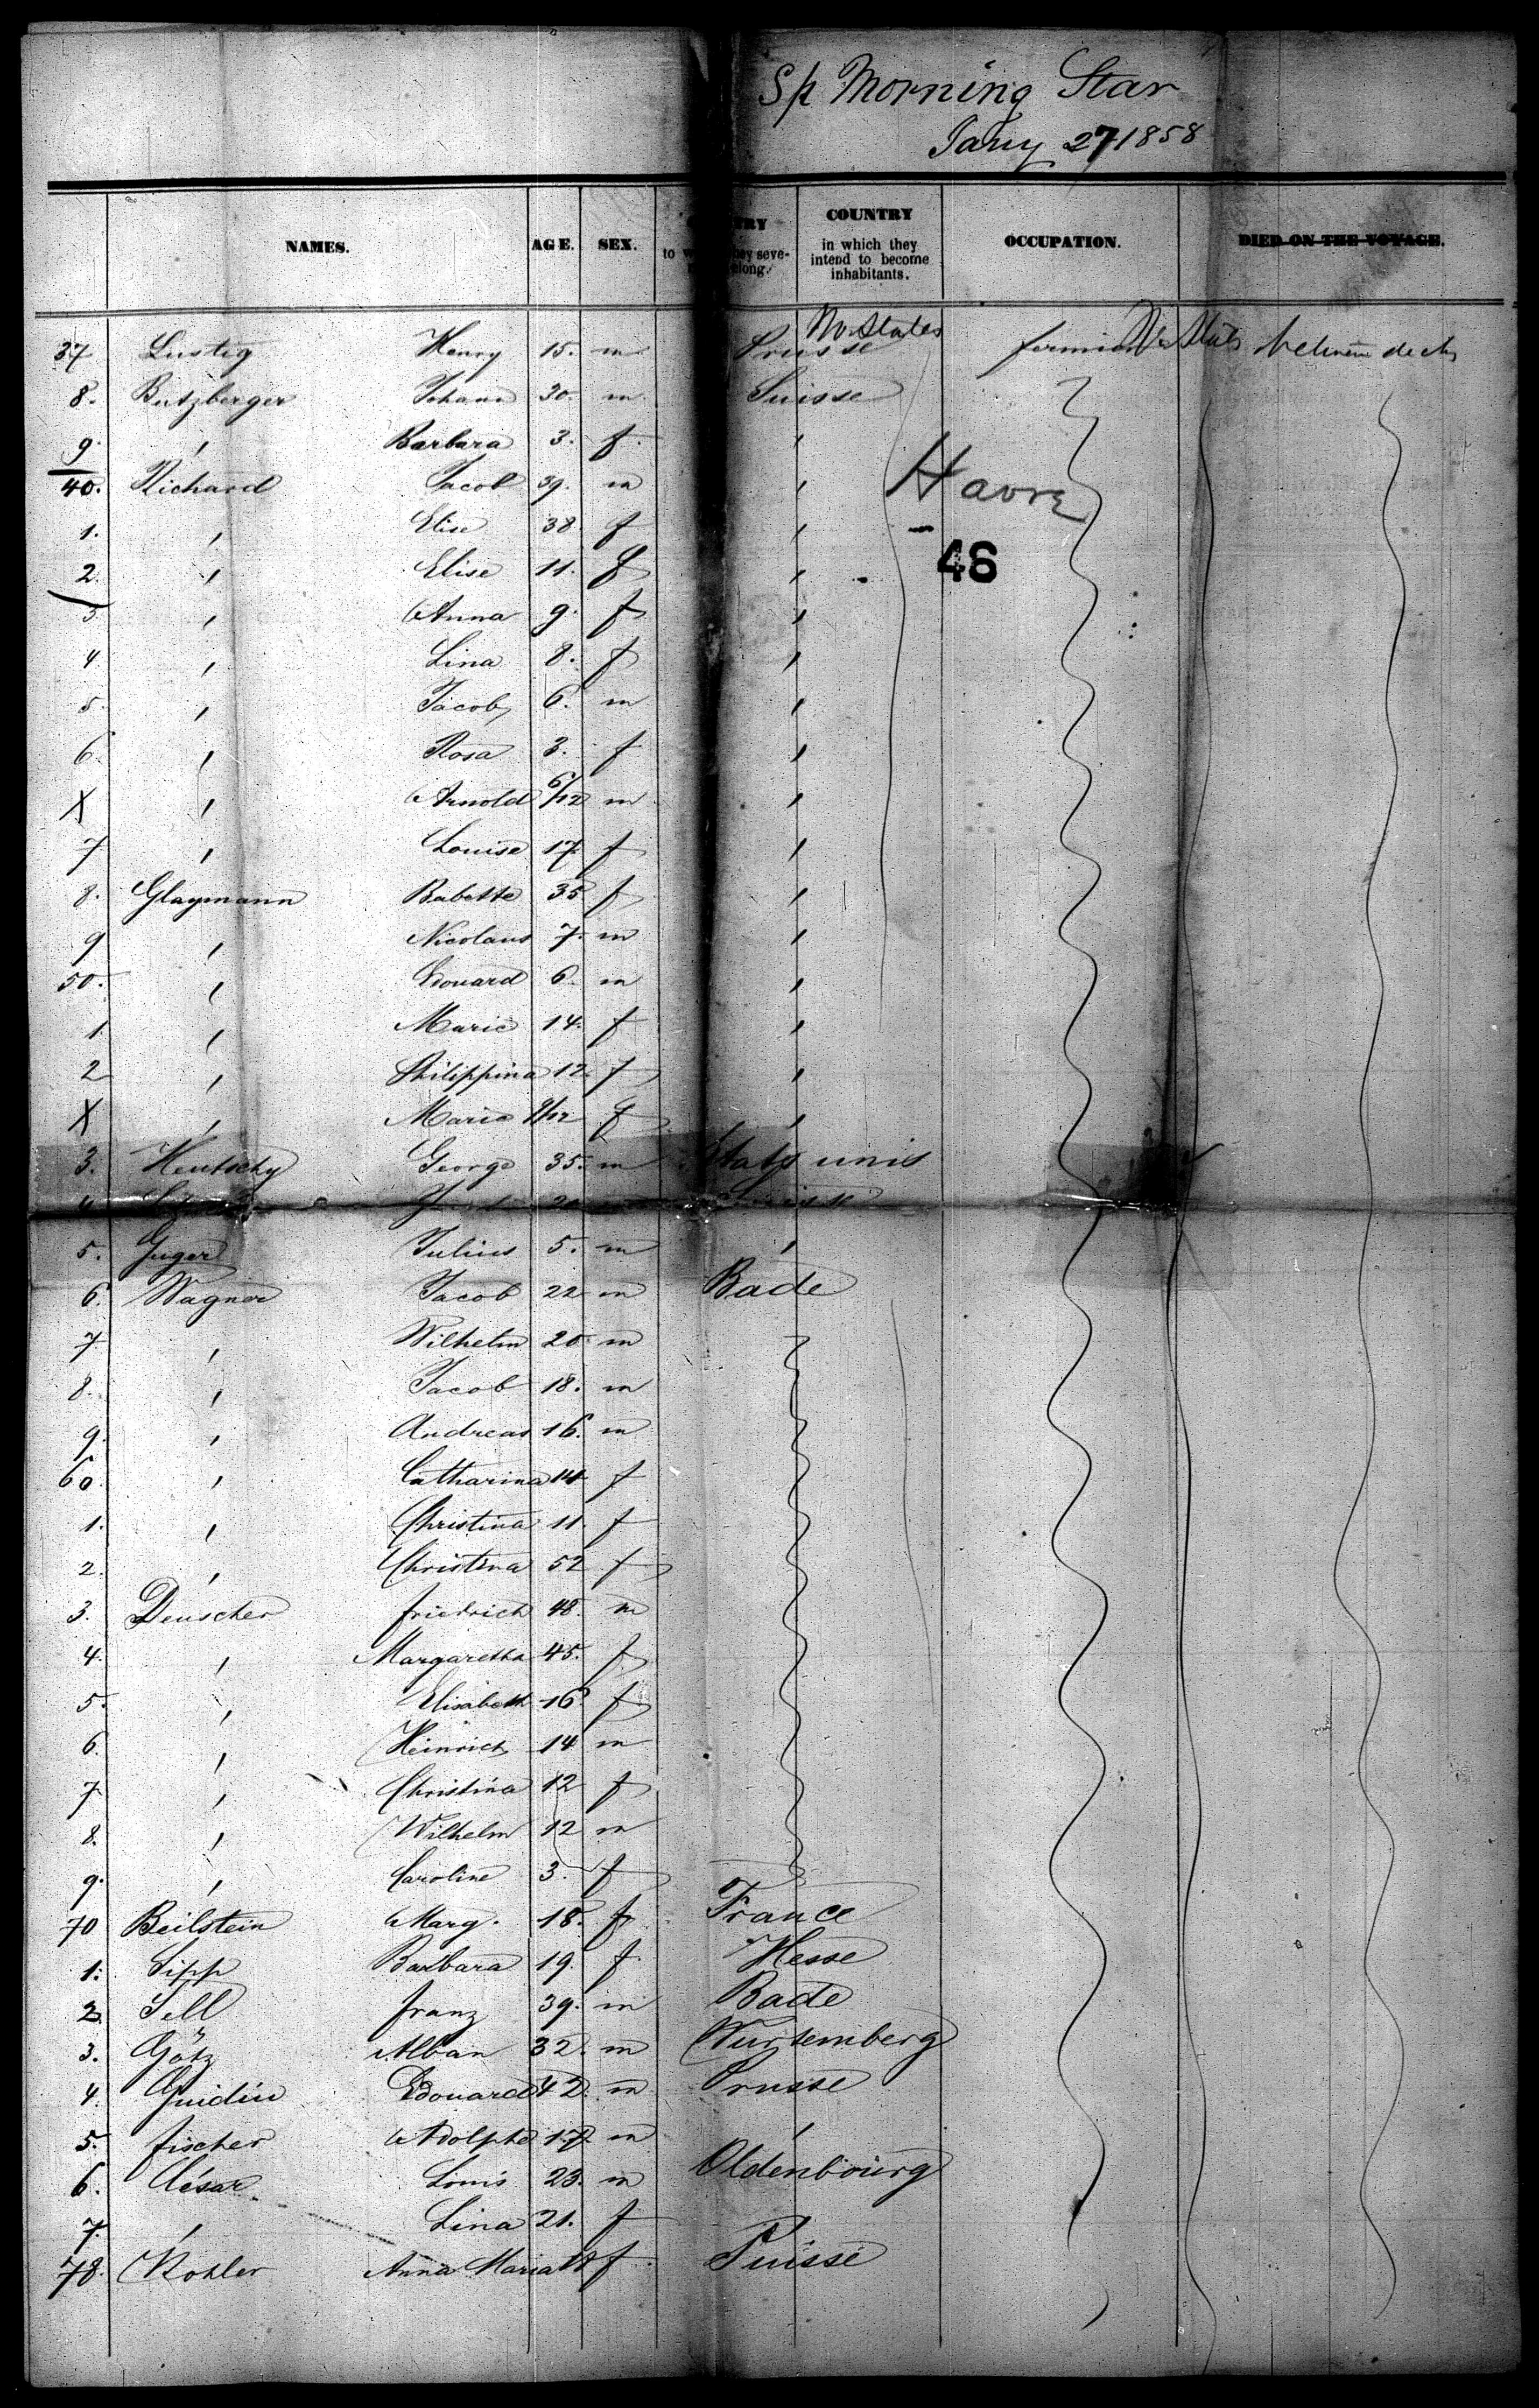 Sp Morning Star
Jany 27 1858
NAMES. AGE. SEX. COUNTRY in which they intend to become inhabitants. OCCUPATION. DIED ON THE VOYAGE.
37 Lustig Henry 15. m Prusse States
8. Butzberger Johann 30. m Suisse
9. , Barbara 3. f ,
40. Richard Jacob 39. m , Havre
1. , Elise 38. f ,
2. , Elise 11. f , 48
3 , Anna 9. f ,
4 , Lina 8. f ,
5. , Jacob 6. m ,
6 , Rosa 3. f ,
X , Arnold 6/12 m ,
7 , Louise 17 f ,
8. Glaymann Babette 35 f ,
9 , Nicolaus 7. m ,
50. , Edouard 6. m ,
1 , Marie 14. f ,
2 , Philippina 12. f ,
X , Maria 9/12 f ,
3. Hentschy George 35. m Etats unis
5. Guger Julius 5. m ,
6. Wagner Jacob 22 m Bade
7 , Wilhelm 20 m
8. , Jacob 18. m
9. , Andreas 16. m
60. , Catharina 14 f
1. , Christina 11. f
2. , Christina 52 f
3. Deuscher friedrich 48. m
4. , Margaretha 45. f
5. , Elisabeth 16 f
6. , Heinrich 14 m
7 , Christina 12 f
8. , Wilhelm 12 m
9. , Caroline 3. f
70 Beilstein Marg. 18. f France
1. Sipp Barbara 19. f Hesse
2. Sell franz 39. m Bade
3. Götz Alban 32. m Wurtemberg
4. Guidin Edouard 42. m Prusse
5. fischer Adolphe 17. m ,
6. César Louis 23. m Oldenbourg
7. , Lina 21. f ,
78. Kohler Anna Maria f Suisse